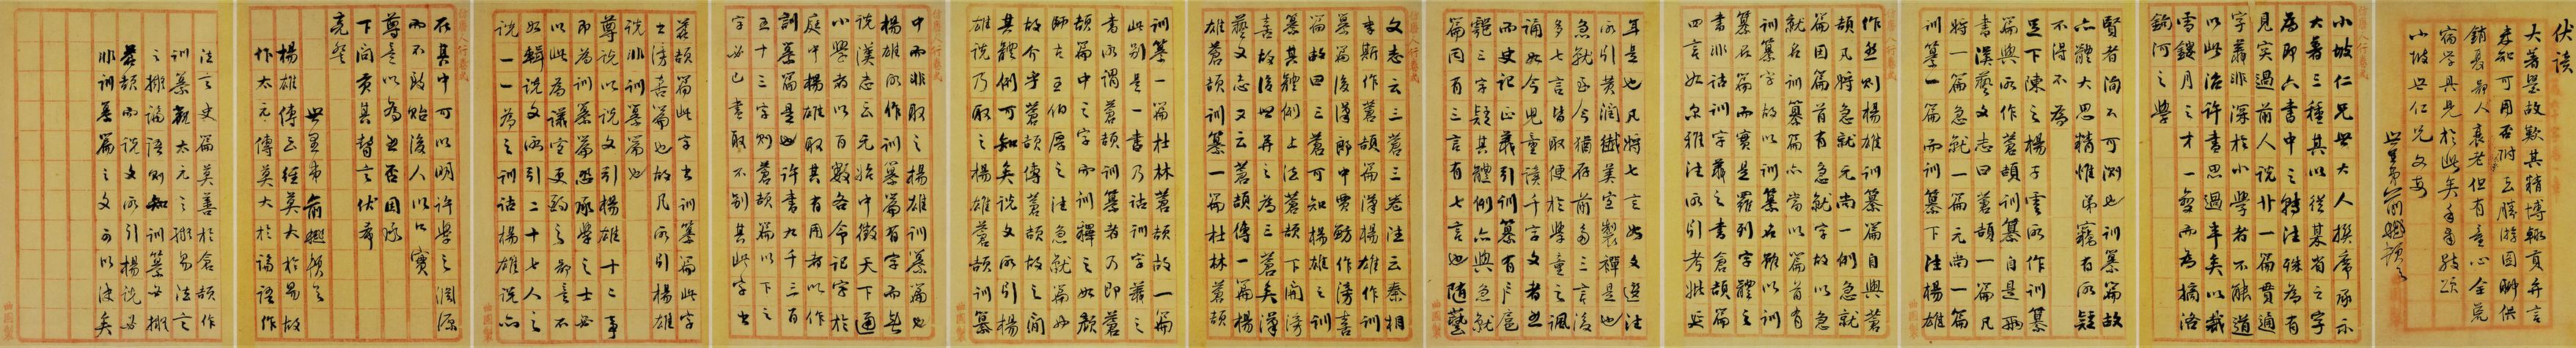 伏讀
大著墨故歎其精博輒貢弁言
未知可用否附五勝游圖聊供
銷憂鄙人衰老但有童心全荒
宿學具見於此矣手肅敬頌
小坡世仁兄文安
世愚弟俞樾頓首
小坡仁兄世大人撰席承示
大著三種其以從某省之字
為即六書中之轉注殊為有
見實過前人說卝一篇貫通
字義非深於小學者不能道
以此治許書思過半矣以裁
雲鏤月之才一變而為摘洛
鉤河之學
賢者洵不可測也訓纂篇故
亦體大思精惟弟竊有所疑
不得不為
足下陳之楊子雲所作訓纂
篇與所作蒼頡訓纂自是兩
書漢藝文志曰蒼頡一篇凡
將一篇急就一篇元尚一篇
訓纂一篇而訓纂下注楊雄
作然則楊雄訓纂篇自與蒼
頡凡將急就元尚一例急就
篇因篇首有急就字故以急
就名訓纂篇亦當以篇首有
訓纂字故以訓纂名雖以訓
纂名篇而實是羅列字體之
書非詁訓字義之書倉頡篇
四言如爾雅注所引考妣延
年是也凡將七言如文選注
所引黃潤纖美宜製襌是也
急就至今猶存前多三言後
多七言皆取便於學童之諷
誦如今兒童讀千字文者然
而史記正義引訓纂有戶扈
鄠三字疑其體例亦與急就
篇同有三言有七言也隨藝
文志云三蒼三卷注云秦相
李斯作蒼頡篇漢楊雄作訓
纂篇後漢郎中賈魴作滂喜
篇故曰三蒼可知楊雄之訓
纂其體例上法蒼頡下開滂
喜故後世并之為三蒼矣漢
藝文志又云蒼頡傳一篇楊
雄蒼頡訓纂一篇杜林蒼頡
訓纂一篇杜林蒼頡故一篇
此別是一書乃詁訓字義之
書所謂蒼頡訓纂者乃即蒼
頡篇中之字而訓釋之如顏
師古王伯厚之注急就篇也
故介乎蒼頡傳蒼頡故之間
其體例可知矣說文所引楊
雄說乃取之楊雄蒼頡訓纂
中而非取之楊雄訓纂篇也
楊雄所作訓纂篇有字而無
說漢志云元始中徵天下通
小學者以百數各令記字於
庭中楊雄取其有用者以作
訓纂篇是也許書九千三百
五十三字則蒼頡篇以下之
字必已盡取不別其此字出
蒼頡篇此字出訓纂篇此字
出滂喜篇也故凡所引楊雄
說非訓纂篇也
尊說以說文引楊雄十二事
即為訓纂篇恐承學之士必
以此為議 鄙意不
如輯說文所引二十七人之
說一一為之訓詁楊雄說亦
在其中可以明許學之淵源
而不致貽後人以口實
尊意以為然否因承
下問貢其瞽言伏希
亮察
世愚弟俞樾頓首
楊雄傳云經莫大於易故
作太元傳莫大於論語作
法言史篇莫善於倉頡作
訓纂觀太元之擬易法言
之擬論語則知訓纂必擬
蒼頡而說文所引楊說必
非訓纂篇之文可以決矣